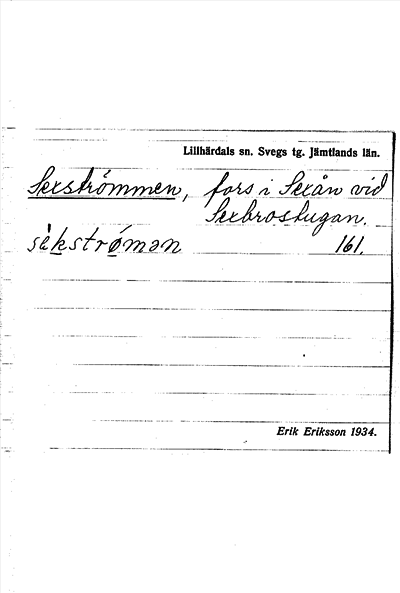 Lillhärdals sn. Svegs tg. Jämtlands län.
Sexströmmen, fors i Sexån vid
Sexbrostugan.
sèkstrǿmən 161.
Erik Eriksson 1934.